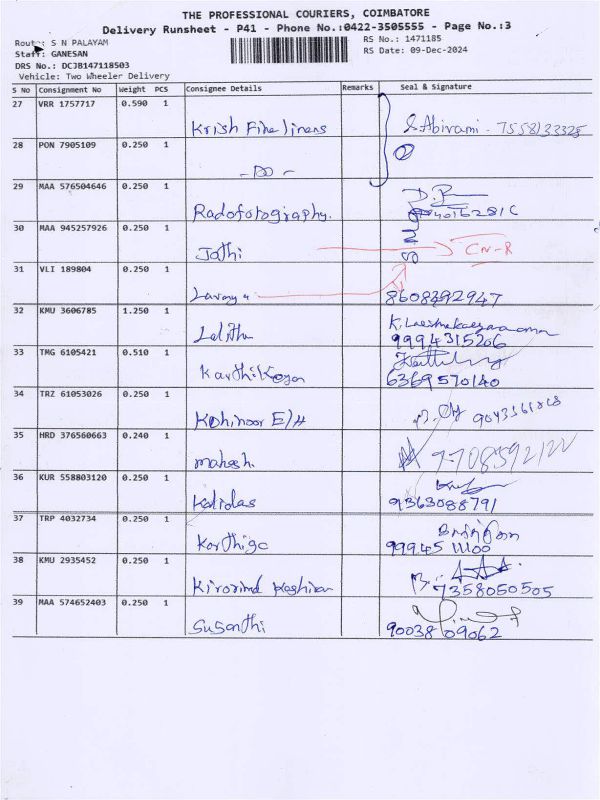 THE PROFESSIONAL COURIERS, COIMBATORE
Delivery Runsheet - P41 - Phone No.:0422-3505555 - Page No.:3
Route: S N PALAYAM RS No.: 1471185
Staff: GANESAN RS Date: 09-Dec-2024
DRS No.: DCJB147118503
Vehicle: Two Wheeler Delivery
S No Consignment No Weight PCS Consignee Details Remarks Seal & Signature
27 VRR 1757717 0.590 1
Krish Fine linens S.Abirami - 7558133325
28 PON 7905109 0.250 1
- Do -
29 MAA 576504646 0.250 1
Radofotography.
30 MAA 945257926 0.250 1
Jothi CN-R
31 VLI 189804 0.250 1
Lavanya 8608392947
32 KMU 3606785 1.250 1
Lalitha 9994315206
33 TMG 6105421 0.510 1
KarthiKeyan 6369570140
34 TRZ 61053026 0.250 1
Kohinoor E/H
35 HRD 376560663 0.240 1
mahesh.
36 KUR 558803120 0.250 1
Kalidas 9363088791
37 TRP 4032734 0.250 1
Karthiga 9994511100
38 KMU 2935452 0.250 1
7358050505
39 MAA 574652403 0.250 1
Susanthi 9003809062